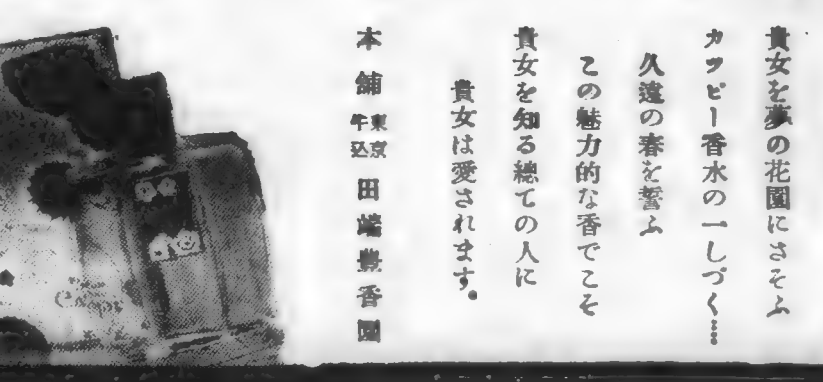 貴女を夢の花園にさそふ
カツピー香水の一しづく……
久遠の春を誓ふ
この魅力的な香でこそ
貴女を知る總ての人に
貴女は愛されます。
本舗 東京牛込 田端豊香園